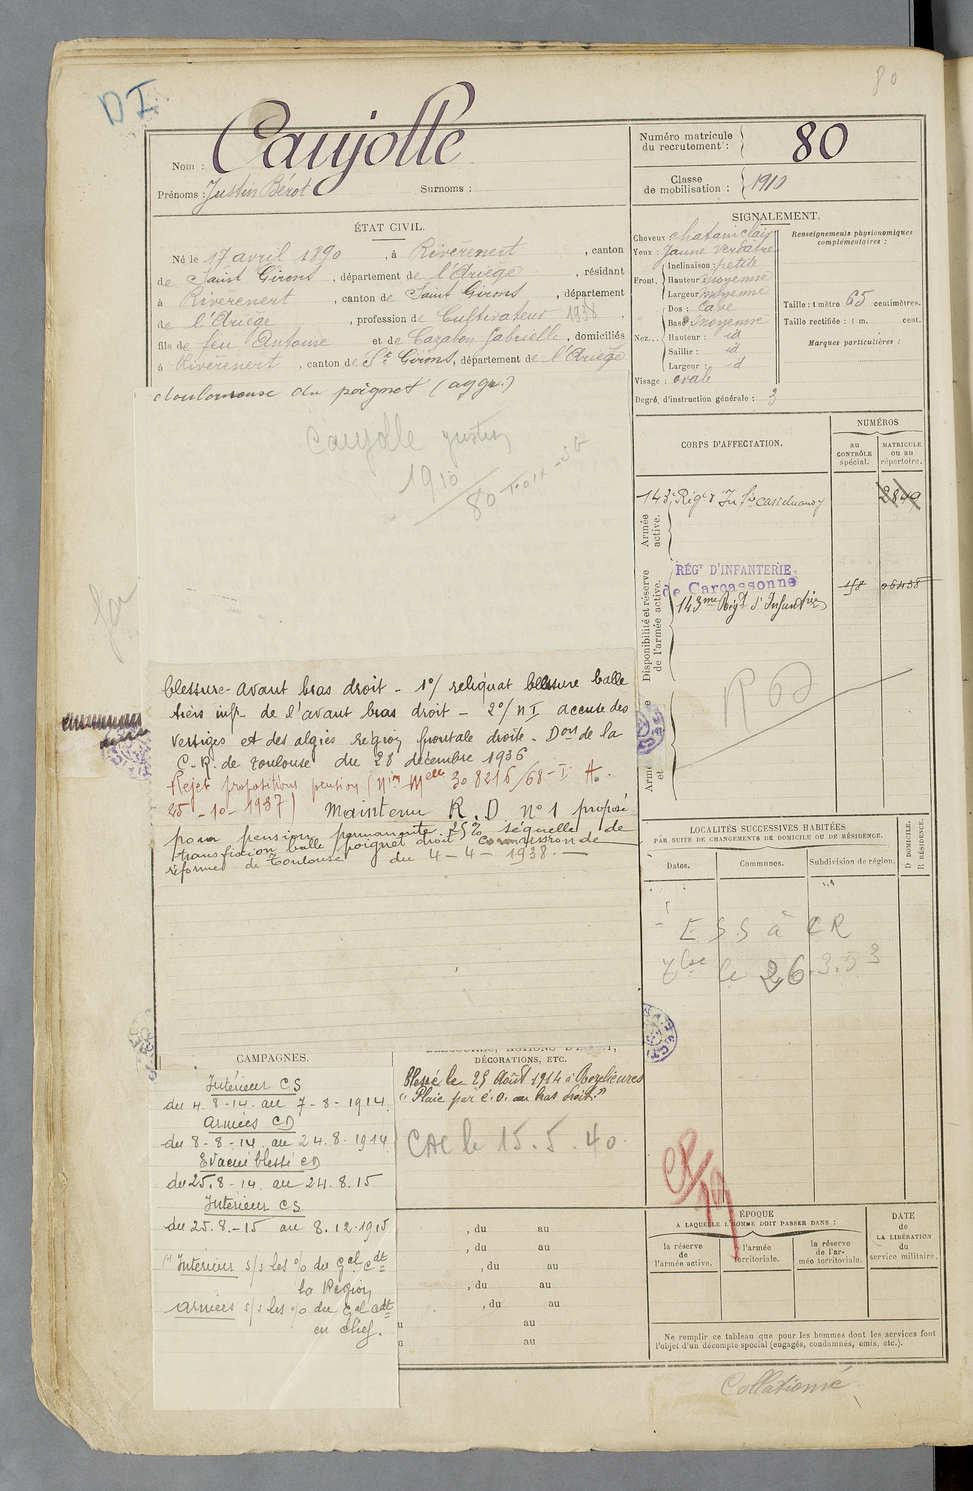 D I.
80
Nom : Caujolle
Prénoms : Justin Bérot Surnoms :
Numéro matricule du recrutement : 80
Classe de mobilisation : 1910
ÉTAT CIVIL.
Né le 17 avril 1890, à Rivèrenert, canton
de Saint Girons, département de l'Ariège, résidant
à Rivèrenert, canton de Saint Girons, département
de l'Ariège, profession de Cultivateur 1938,
fils de feu Antoine et de Cazaton Gabrielle, domiciliés
à Rivèrenert, canton de St Girons, département de l'Ariège
SIGNALEMENT.
Cheveux chatain clair
Yeux : Jaune verdatre
Front. Inclinaison : petite
Hauteur moyenne
Largeur moyenne
Nez... Dos : Cave
Base : moyenne
Hauteur : id
Saillie : id
Largeur : id
Visage : ovale
Degré d'instruction générale : 3
Renseignements physionomiques complémentaires :
Taille : 1 mètre 65 centimètres.
Taille rectifiée : 1 m. cent.
Marques particulières :
douloureuse du poignet (aggr.)
Caujolle Justin
1910
80
blessure avant bras droit - 1°/ reliquat blessure balle
tiers infr. de l'avant bras droit - 2°/ nI accuse des
vertiges et des algies région frontale droite. Don de la
C.R. de Toulouse du 28 décembre 1936
Rejet propositions pension (
25-10-1937) Maintenu R.D n°1 proposé
pour pension permanente 25% séquelle de
transfixion balle poignet droit. Commission de
réforme de Toulouse du 4-4-1938.
CORPS D'AFFECTATION.
NUMÉROS
au CONTRÔLE spécial.
MATRICULE ou au répertoire.
Armée active.
143e Régt Infie Castelnaudy 2849
Disponibilité et réserve de l'armée active.
RÉGT D'INFANTERIE
de Carcassonne
143me Régt d'Infanterie
LOCALITÉS SUCCESSIVES HABITÉES
PAR SUITE DE CHANGEMENTS DE DOMICILE OU DE RÉSIDENCE.
Dates. Communes. Subdivision de région. D DOMICILE. R RÉSIDENCE.
E S S à CR
Tlse le 26.3.53
CAMPAGNES.
Intérieur CS
du 4.8-14. au 7-8-1914.
Armées CD
du 8-8-14. au 24.8.1914
Evacué blessé CD
du 25.8-14. au 24.8.15
Intérieur CS
du 25.8.-15 au 8.12.1915
(1) Intérieur s/s les % du Gal Cdt
la Région
Armées s/s les % du Gal Cdt
en chef.
DÉCORATIONS, ETC.
Blessé le 25 Août 1914 à Rozelieures
"Plaie par é.o. au bras droit."
CAC le 15.5.40
, du au
, du au
, du au
, du au
, du au
au
au
ÉPOQUE
A LAQUELLE L'HOMME DOIT PASSER DANS :
la réserve de l'armée active.
l'armée territoriale.
la réserve de l'armée territoriale.
DATE de LA LIBÉRATION du service militaire.
Ne remplir ce tableau que pour les hommes dont les services font
l'objet d'un décompte spécial (engagés, condamnés, omis, etc.).
Collationné